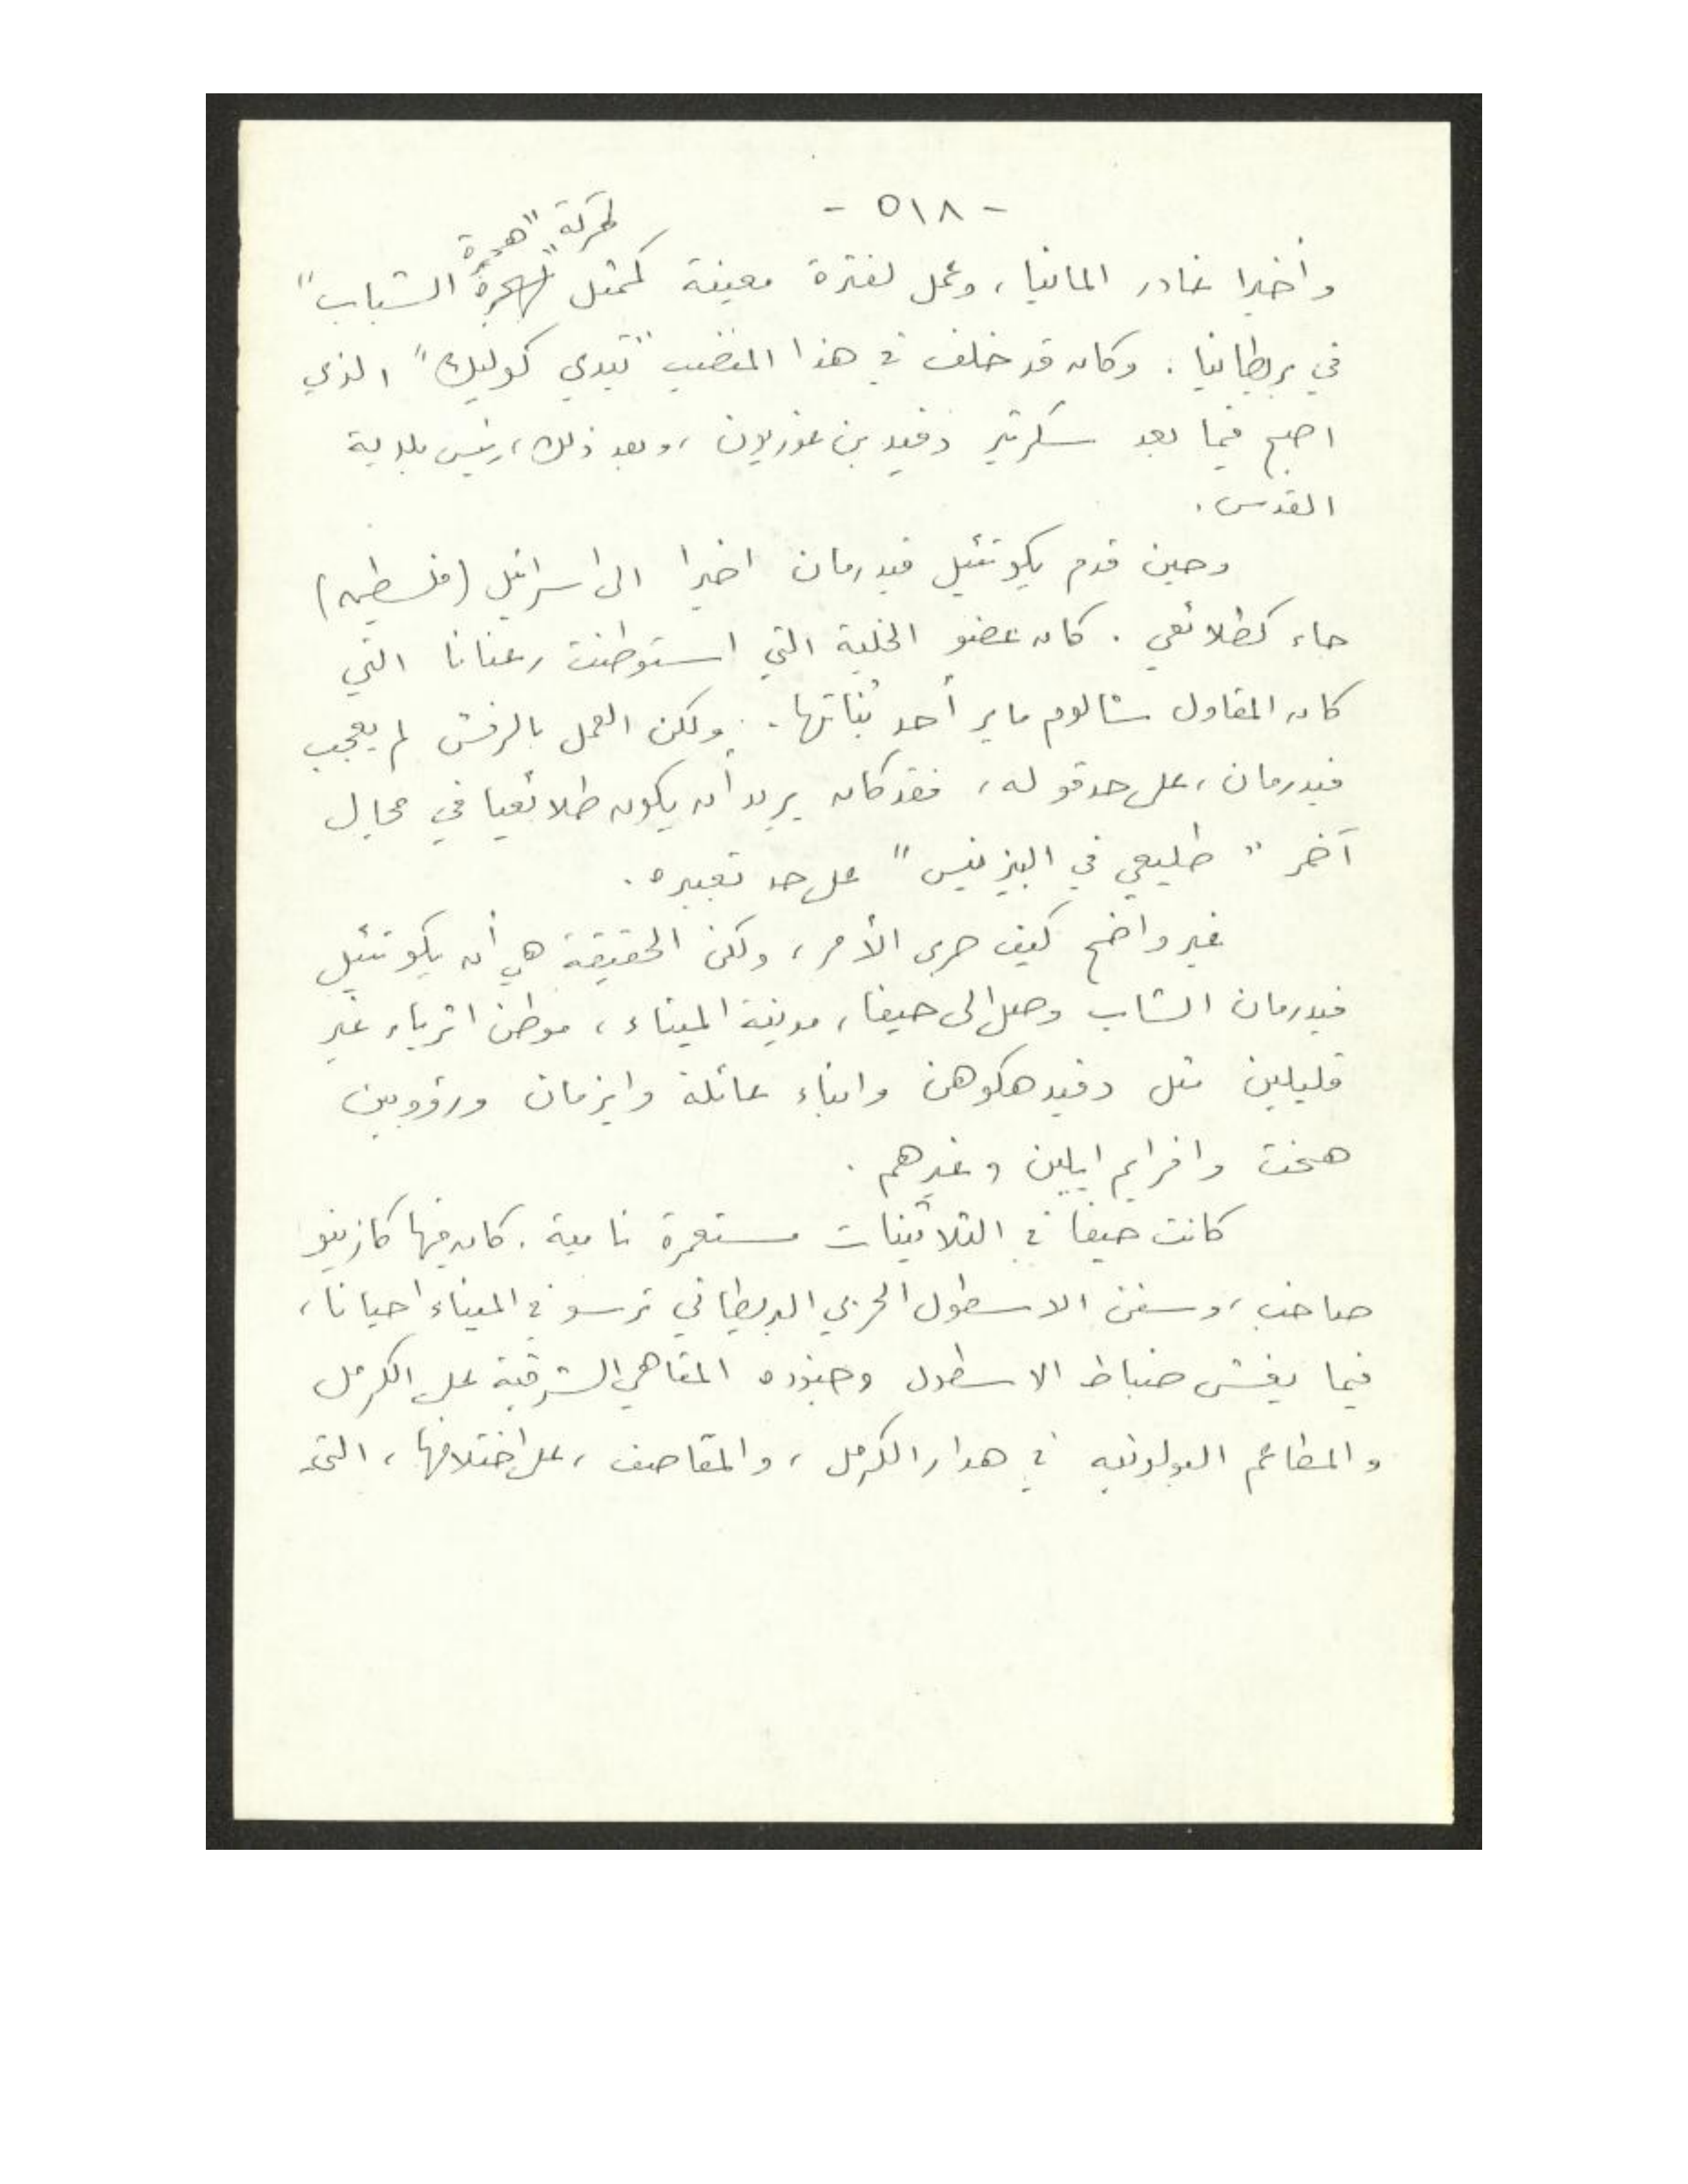 - ٥١٨ -
لحركة "هجرة
وأخيرا غادر المانيا، وعمل لفترة معينة كممثل "لهجرة الشباب"
في بريطانيا. وكان قد خلف في هذا المنصب "تيدي كوليك" الذي
اصبح فيما بعد سكرتير دفيد بن غوريون، وبعد ذلك، رئيس بلدية
القدس.
وحين قدم يكوتئيل فيدرمان اخيرا الى اسرائيل (فلسطين)
جاء كطلائعي. كان عضو الخلية التي استوطنت رعنانا التي
كان المقاول شالوم ماير أحد بُناتها. ولكن العمل بالرفش لم يعجب
فيدرمان، على حد قوله، فقد كان يريد أن يكون طلائعيا في مجال
آخر " طليعي في البيزنيس" على حد تعبيره.
غير واضح كيف جرى الأمر، ولكن الحقيقة هي أن يكوتئيل
فيدرمان الشاب وصل الى حيفا، مدينة الميناء، موطن اثرياء غير
قليلين مثل دفيد هكوهن وابناء عائلة وايزمان ورؤوبين
هخت وافرايم ايلين وغيرهم.
كانت حيفا في الثلاثينات مستعمرة نامية. كان فيها كازينو
صاخب، وسفن الاسطول الحربي البريطاني ترسو في الميناء احيانا،
فيما يغشى ضباط الاسطول وجنوده المقاهي الشرقية على الكرمل
والمطاعم البولونيه في هدار الكرمل، والمقاصف، على اختلافها، التي